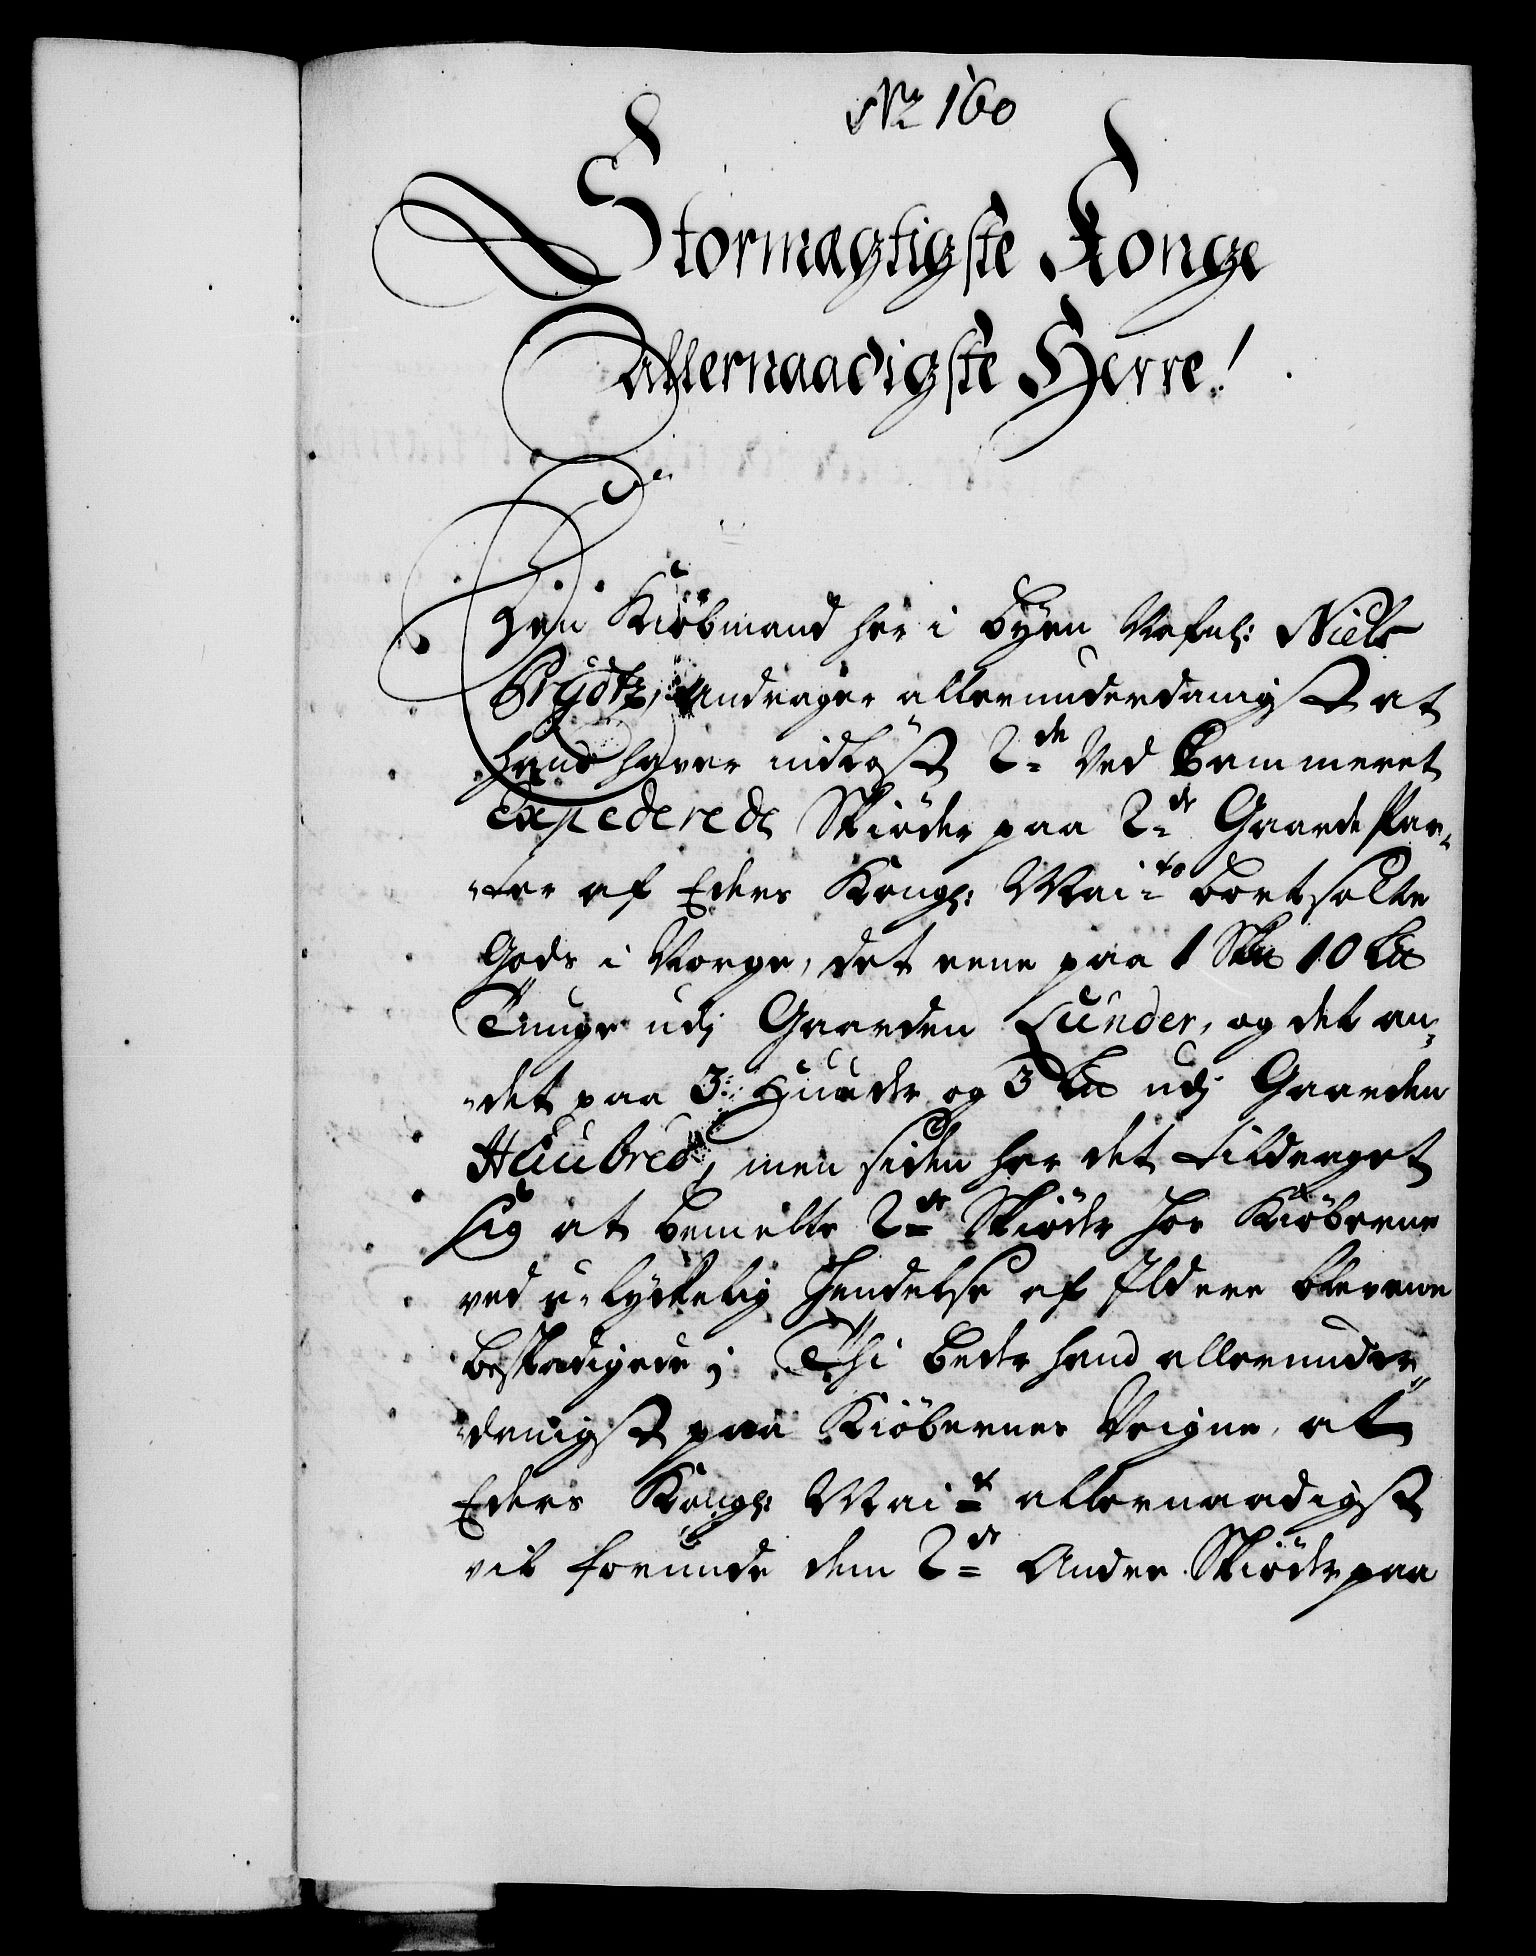 No 160
Stormægtigste Konge
Allernaadigste Herre!
Een Kiöbmand her i Byen Nafnl: Niels
Brydtz, Andrager allerunderdanigst at
hand haver indløst 2de Ved Cammeret
Expederede Skiöder paa 2de Gaarde Par-
-ter af Eders Kongl: Maits bortsolte
Gods i Norge, det eene paa 1 Sk℔ 10 L℔
Tunge udj Gaarden Lunder, og det an-
-det paa 3: Huuder og 3 L℔ udj Gaarden
Huubred, men siden har det tildraget
sig at bemelte 2de Skiöder hos Kiöberne
ved u-lyckelig Hendelse af Ild ere blevne
beskadigede; Thi beder hand allerunder-
-danigst paa Kiöbernes Veigne, at
Eders Kongl: Mait allernaadigst
vil forunde dem 2de Andre Skiöder paa